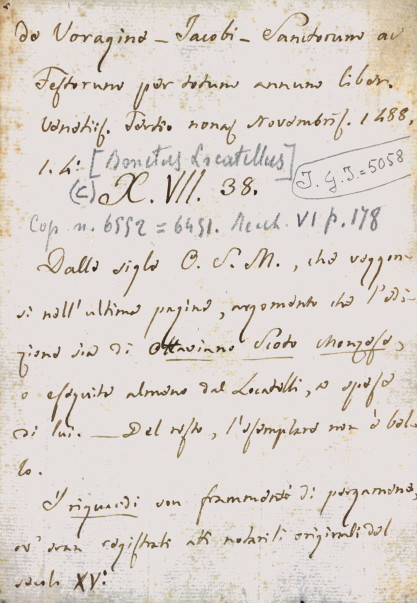 de Voragine – Jacobi – Sanctorum ac
Festorum per totum annum liber.
Venetiis. Tertio nonas Novembris. 1488.
I. 4: [Bonetus Locatellus]
(C) X. VII. 38.
I. G. I. = 5058
Cop. n. 6552 = 6491. Reich. VI p. 178
Dalle sigle O. S. M., che veggon
si nell'ultima pagina, argomento che l'edi
zione sia di Ottaviano Scoto Monzese,
o eseguita almeno dal Locatelli, a spese
di lui. — Del resto, l'esemplare non è bel
lo.
I riguardi son frammenti di pergamena,
ov' eran registrati atti notarili originali del
secolo XV: